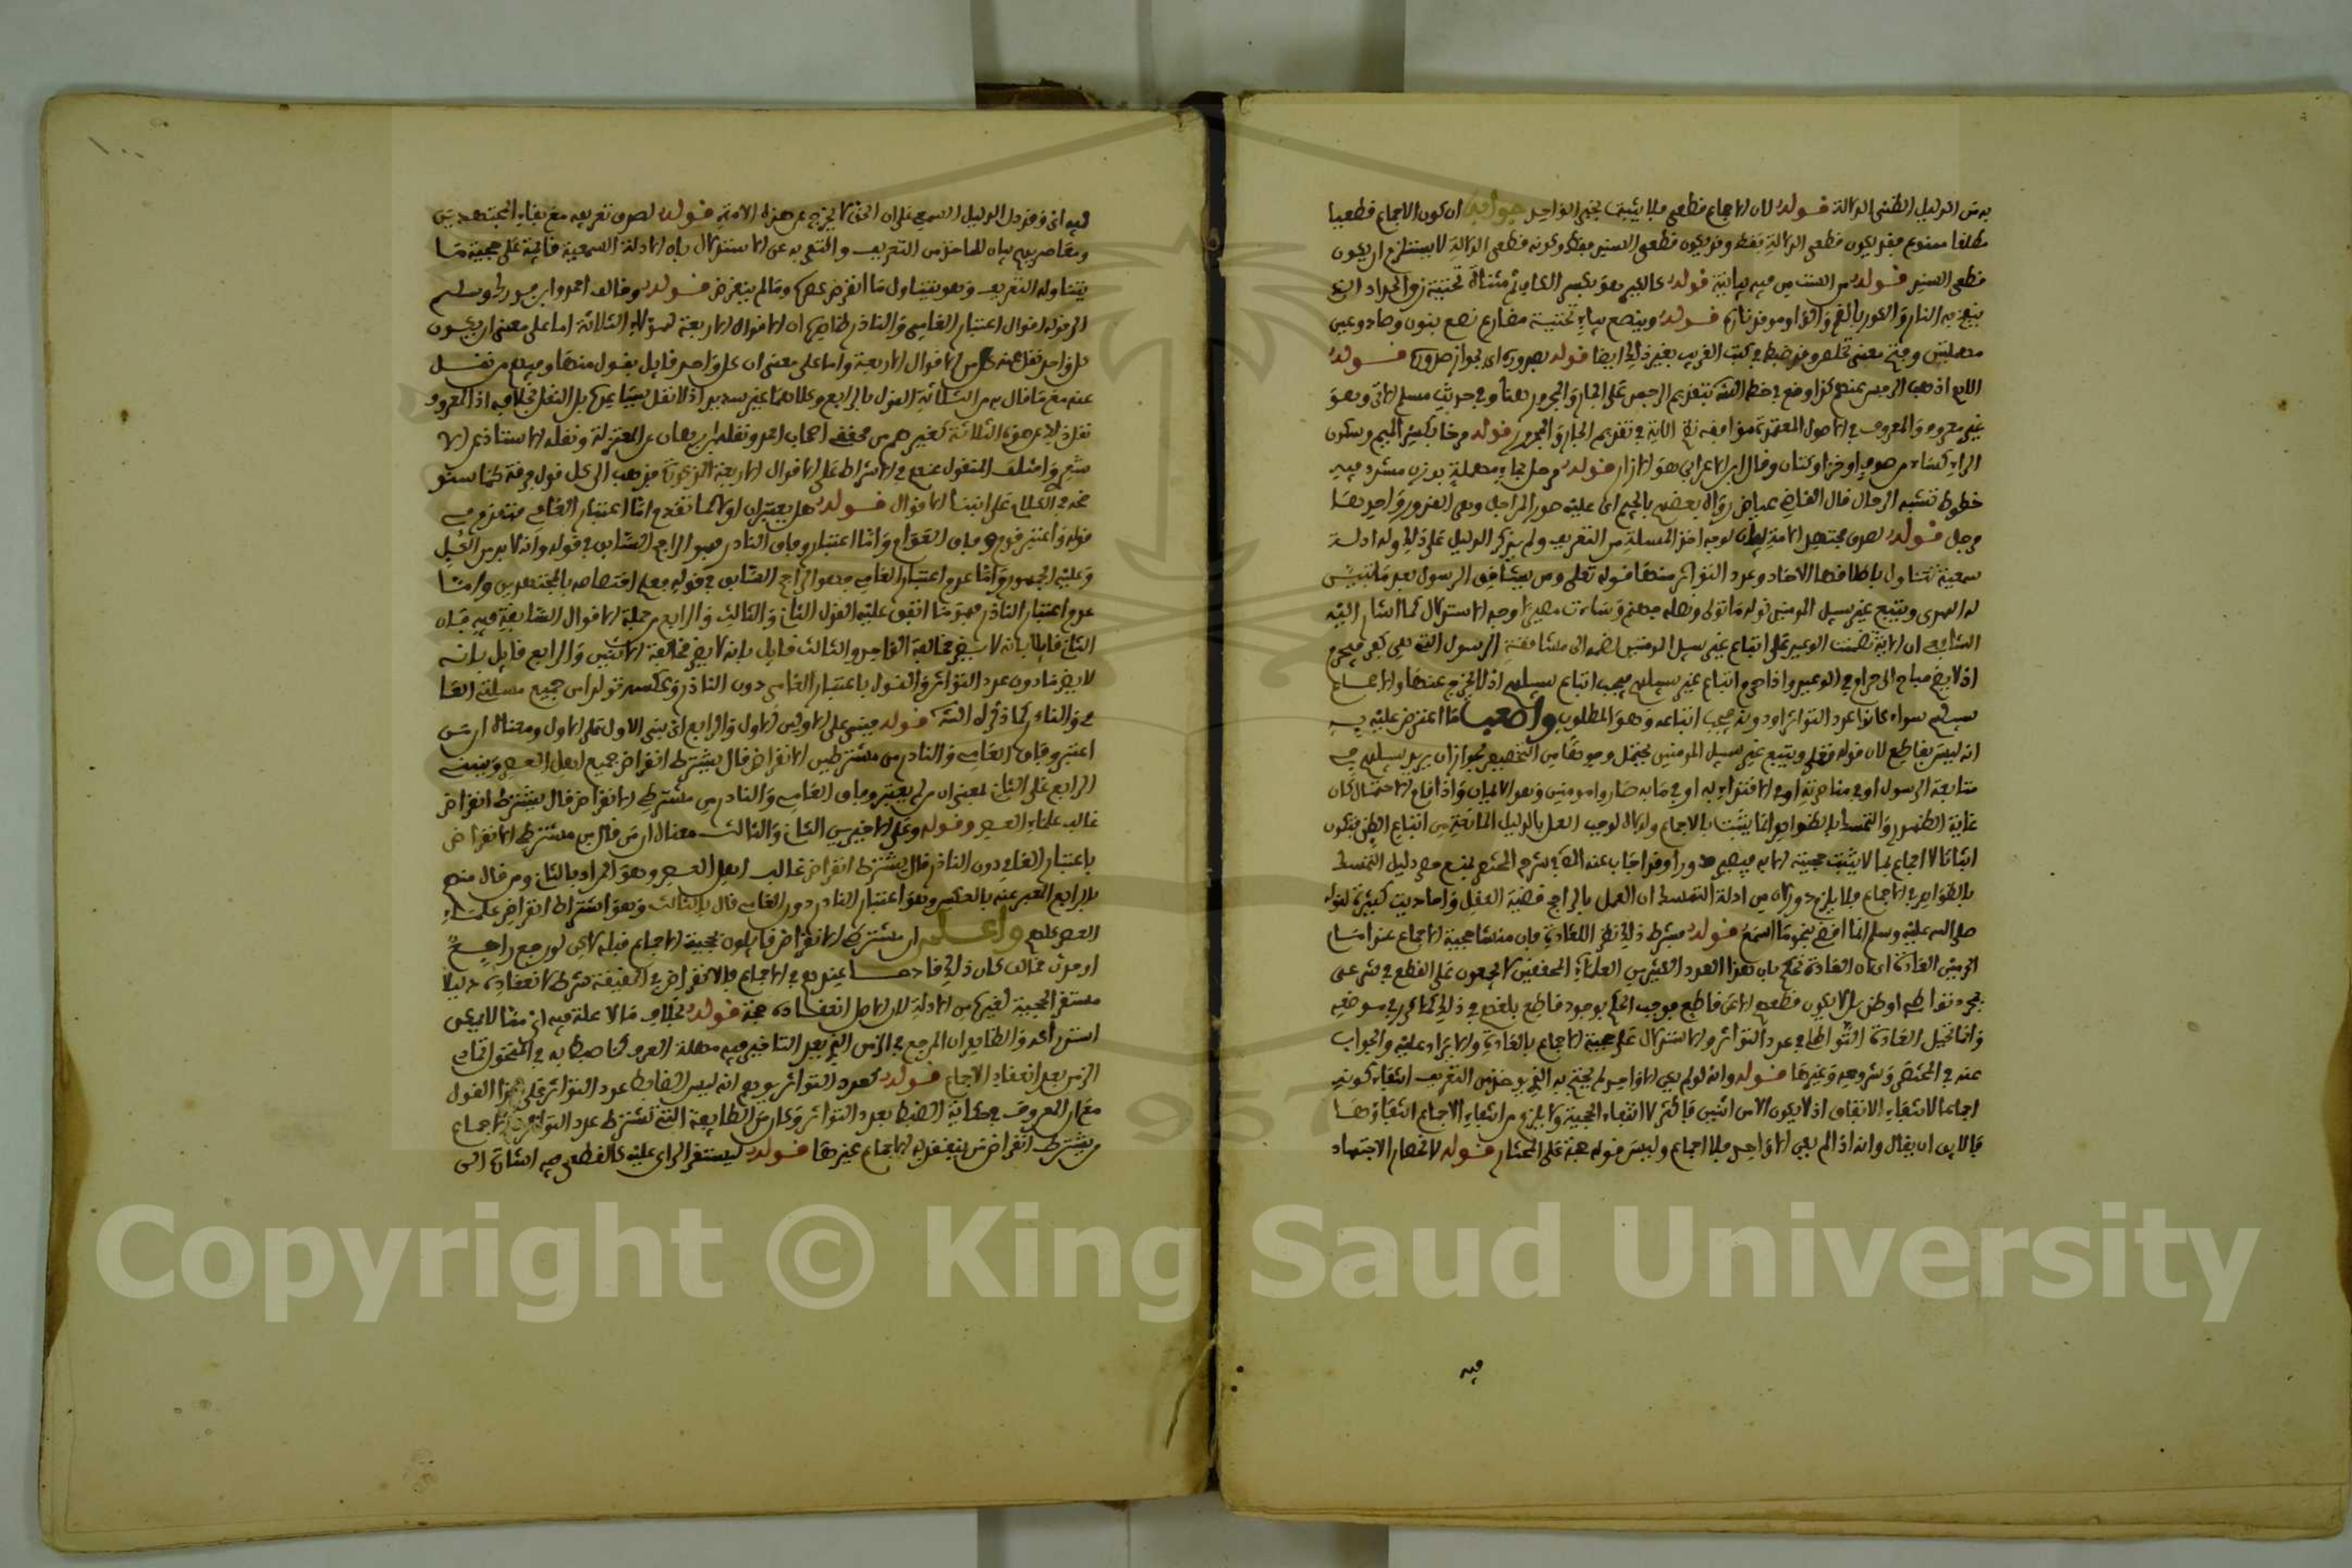 به من الدليل الظني الدلالة قوله لان الاجماع قطعي فلا يثبت بخبر الواحد جوابه ان كون الاجماع قطعيا
مطلقا ممنوع فقد يكون قطعي الدلالة فقط وقد يكون قطعي السند فقط وكونه قطعي الدلالة لا يستلزم ان يكون
قطعي السند قوله من السنت من فيه بيانية قوله كالكير هو بكسر الكاف ثم مثناة تحتية زق الحداد الذي
ينفخ به النار والكور بالضم وقوله وينصع بياء تحتية مضارع نصع بنون وصاد وعين
مهملتين وفتح بمعنى تخلص وفيه ضبط في كتب الغريب بغير ذلك ايضا قوله بصدوره اي لجواز صدوره قوله
اللهم اذهب الرجس عنهم كذا وقع في خط الشيخ بتقديم الرجس على الجار والمجرور هنا وفي حديث مسلم الاتي وهو
غير معروف والمعروف في الاصول المعتمدة موافقة نظم الاية في تقديم الجار والمجرور قوله مرط بكسر الميم وسكون
الراء كساء من صوف او خز او كتان وقال ابن الاعرابي هو الازار قوله مرحل بحاء مهملة بوزن مشدد فيه
خطوط تشبه الرحال قال القاضي عياض رواه بعضهم بالجيم اي عليه صور المراجل وهي القدور واحدها
مرجل قوله لصدق مجتهد الامة لوجه اخذ المسئلة من التعريف ولم يذكر الدليل على ذلك وله ادلة
سمعية تتناول باطلاقها الاحاد وعدد التواتر منها قوله تعلى ومن يشاقق الرسول بعد ما تبين
له الهدى ويتبع غير سبيل المومنين نوله ما تولى ونصله جهنم وساءت مصيرا وجه الاستدلال كما اشار اليه
الشافعي ان الاية تضمنت الوعيد على اتباع غير سبيل المومنين لضمه الى مشاققة الرسول التي هي كفر فيحرم
اذ لا يضم مباح الى حرام في الوعيد واذا حرم اتباع غير سبيلهم يجب اتباع سبيلهم اذ لا مخرج عنهما والاجماع
سبيلهم سواء كانوا عدد التواتر او دونه فيجب اتباعه وهو المطلوب واضعف ما اعترض عليه به
انه ليس بقاطع لان قوله تعلى ويتبع غير سبيل المومنين يحتمل وجوها من التخصيص لجواز ان يريد سبيلهم في
متابعة الرسول او في مناصرته او في الاقتداء به او في ما به صاروا مومنين وهو الايمان واذا قام الاحتمال كان
غاية الظهور والتمسك بالظواهر انما يثبت بالاجماع ولولاه لوجب العمل بالدليل المانعة من اتباع الظن فيكون
اثباتا للاجماع بما لا يثبت حجيته الا به فيصير دورا وقد اجاب عنه في شرح المختصر بمنع حصر دليل التمسك
بالظواهر في الاجماع فلا يلزم دور لان من ادلة التمسك ان العمل بالراجح قضية العقل واحاديث كثيرة لقوله
صلى الله عليه وسلم انما اقضي بنحو ما اسمع قوله مشرط ذلك نظر اللعادة فان منشا حجية الاجماع عند امام
الحرمين العادة اي ان العادة تحكم بان هذا العدد الكثير من العلماء المحققين لا يجمعون على القطع في شرعي
بمجرد تواطئ او ظن بل لا يكون قطعهم الا عن قاطع فوجب الحكم بوجود قاطع بلغهم في ذلك كما قرر في موضعه
وانما تحيل العادة التواطا في عدد التواتر والاستدلال على حجية الاجماع بالعادة والايراد عليه والجواب
عنه في المختصر وشروحه وغيرها قوله وانه لو لم يكن الا واحد لم يحتج به الذي يوخذ من التعريف انتفاء كونه
اجماعا لانتفاء الاتفاق اذ لا يكون الا من اثنين فاكثر لا انتفاء الحجية ولا يلزم من انتفاء الاجماع انتفاؤها
فالاولى ان يقال وانه اذا لم يبق الا واحد فلا اجماع وليس قوله حجة على المختار قوله لانحصار الاجتهاد
فيه
فيه اي وقد دل الدليل السمعي على ان الحق لا يخرج عن هذه الامة قوله لصدق تعريفه مع بقاء المجتهدين
ومعاصريهم بيان للماخذ من التعريف والتنبيه عن الاستدلال بان الادلة السمعية قائمة على حجية ما
يتناوله التعريف وهو يتناول ما انقرض عصره وما لم ينقرض قوله وخالف احمد وابن فورك وسليم
الى قوله اقوال اعتبار العامي والنادر ظاهره ان الاقوال الاربعة لهؤلاء الثلاثة اما على معنى ان يكون
كل واحد نقل عنه كل من الاقوال الاربعة واما على معنى ان كل واحد قائل بقول منها وفيهم من نقل
عنه مع ما قال به من الثلاثة القول بالرابع وكلاهما غير سديد اذ لا نقل يساعده بل النقل بخلافه اذ المعروف
نقل ذلك عن هؤلاء الثلاثة كغيرهم من محققي اصحاب احمد ونقله ابن برهان عن المعتزلة ونقله الاستاذ عن الا
شعري واختلف المنقول عنهم في الاشتراط على الاقوال الاربعة الى كل قول فرقة كما ستو
ضحه في الكلام على ابتناء الاقوال قوله هل يعتبران اولا كما تقدم اما اعتبار العامي فتقدم في
قوله واعتبر قوم وفاق العوام واما اعتبار وفاق النادر فهو الراجح السابق في قوله وانه لا بد من الكل
وعليه الجمهور واما عدم اعتبار العامي فهو الراجح السابق في قوله فعلم اختصاصه بالمجتهدين واما
عدم اعتبار النادر فهو ما اتفق عليه القول الثاني والثالث والرابع من جملة الاقوال السابقة فيه فان
الثاني قائل بانه لا يضر مخالفة الواحد والثالث قائل بانه لا يضر مخالفة الاثنين والرابع قائل بانه
لا يضر ما دون عدد التواتر والقول باعتبار العامي دون النادر وعكسه تولدا من جميع مسئلتي العا
مي والنادر كما ذكره الشيخ قوله فيبنى على الاولين الاول والرابع اي يبنى الاول على الاول ومعناه ان من
اعتبر وفاق العامي والنادر من مشترطي الانقراض قال يشترط انقراض جميع اهل العصر ويبنى
الرابع على الثاني بمعنى ان من لم يعتبر وفاق العامي والنادر من مشترطي الانقراض قال يشترط انقراض
غالب علماء العصر وقوله وعلى الاخيرين الثاني والثالث معناه ان من قال من مشترطي الانقراض
باعتبار العامي دون النادر قال يشترط انقراض غالب اهل العصر وهو المراد بالثاني ومن قال منهم
بالرابع المعبر عنه بالعكس وهو اعتبار النادر دون العامي قال بالثالث وهو اشتراط انقراض علماء
العصر كلهم واعلم ان مشترطي الانقراض قائلون بحجية الاجماع قبله لاكن لو رجع راجع
او حدث مخالف كان ذلك قادحا عندهم في الاجماع فالانقراض في الحقيقة شرط لانعقاده دليلا
مستقر الحجية لغيره من الادلة لان الاصل انعقاده حجة قوله بخلاف ما لا مهلة فيه اي مما لا يمكن
استدراكه والظاهر ان المرجع في الزمن الذي يعد التاخير فيه مهلة العرف
الزمن بعد انعقاد الاجماع قوله كعدد التواتر يوهم انه ليس الضابط عدد التواتر على هذا القول
مع ان المعروف في حكاية الضبط بعدد التواتر وكان من الطايفة التي تشترط عدد التواتر في الاجماع
من يشترط انقراض من ينعقد به الاجماع غيرها قوله ليستقر الراي عليه كالقطعي فيه اشارة الى
Copyright © King Saud University
1957